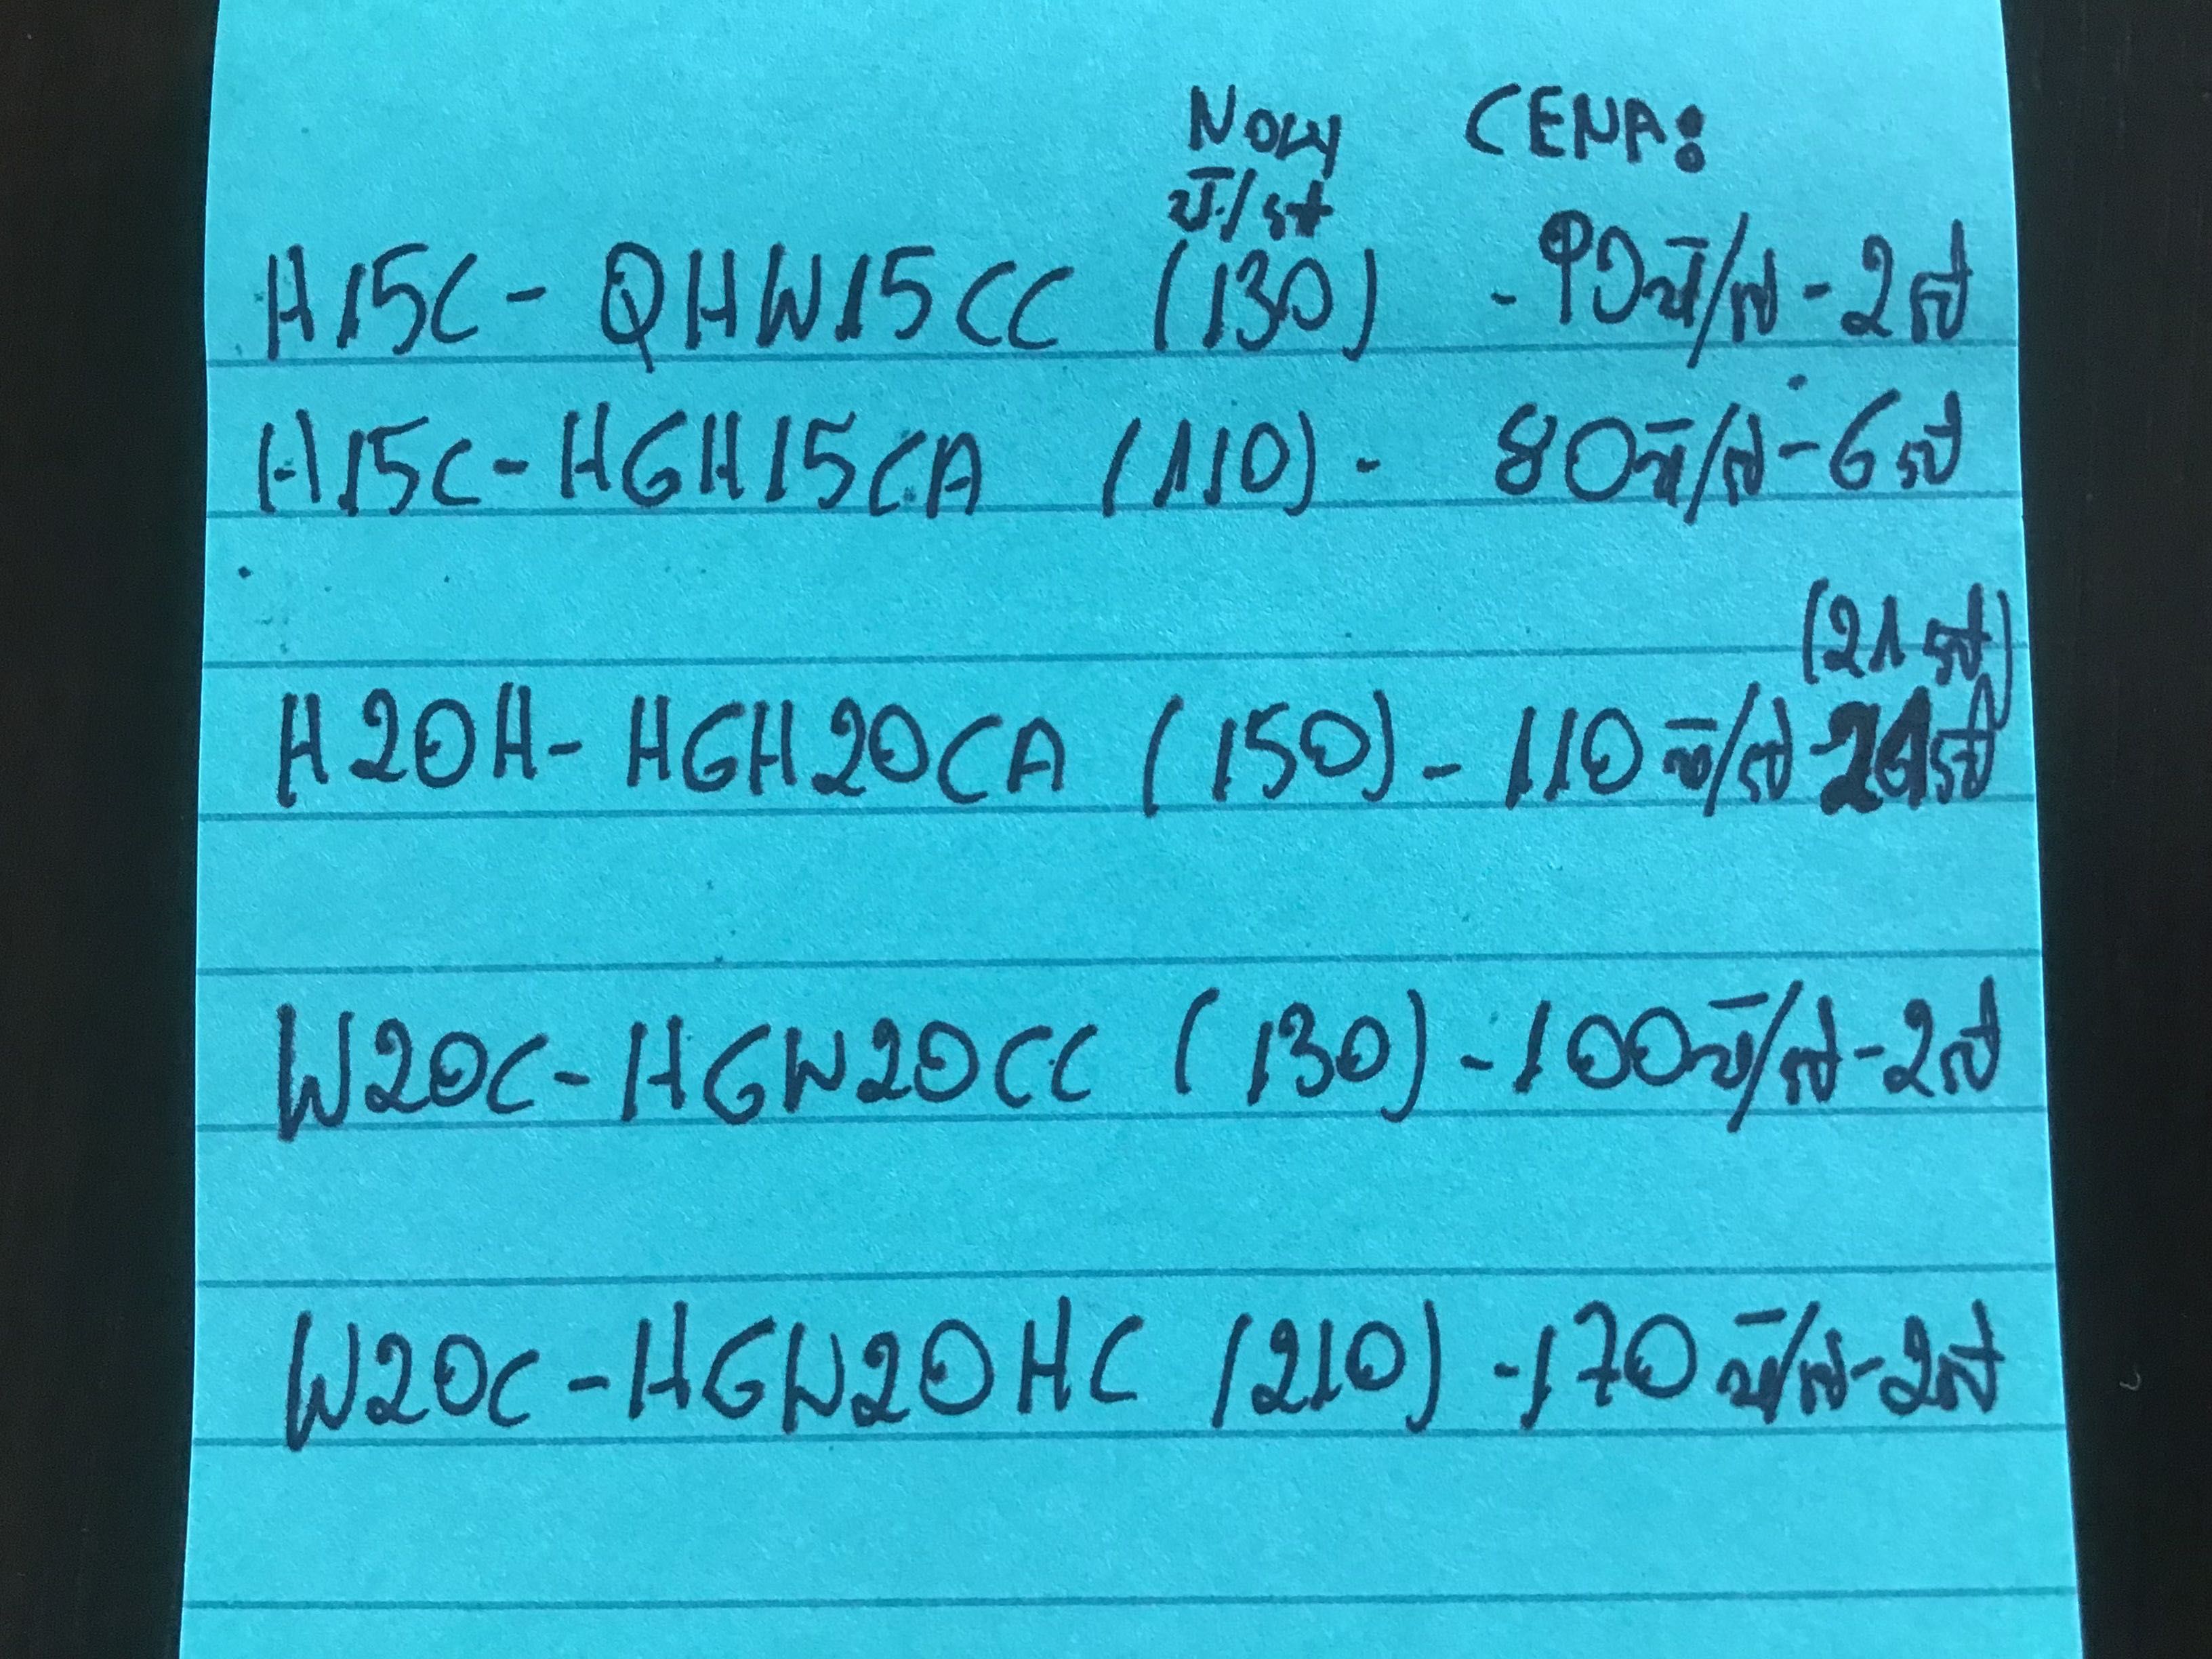 Nowy CENA:
zł/szt
H15C - QHW15CC (130) - 90zł/szt - 2szt
H15C - HGH15CA (110) - 80zł/szt - 6szt
(21szt)
H20H - HGH20CA (150) - 110zł/szt - 21szt
W20C - HGW20CC (130) - 100zł/szt - 2szt
W20C - HGW20HC (210) - 170zł/szt - 2szt